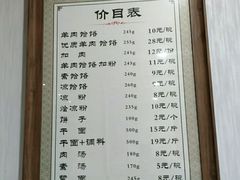 价目表
羊肉饸饹 245g 10元/碗
优质羊肉饸饹 255g 28元/碗
加肉 245g 12元/份
羊肉饸饹加粉 245g 11元/碗
素饸饹 240g 9元/碗
凉饸饹 250g 9元/碗
凉粉 250g 8元/碗
烩凉粉 240g 10元/碗
饼子 100g 2元/个
干面 500g 15元/斤
干面+调料 500g 19元/斤
肉汤 180g 8元/碗
素汤 170g 5元/碗
245g 8元/碗